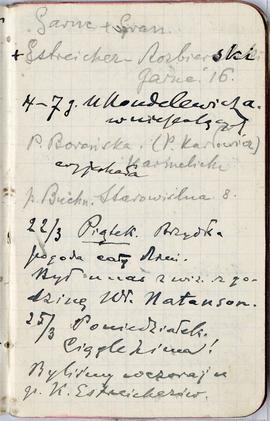 Garnc + Gran.
+ Estreicher – Rozbierski
Garnc. 16.
4–7 g. u Mendelewicza.
P. Borońska. (P. Karłowicz)
wyjechała Karmelich
p. Buchn. Starowiślna 8.
22/3 Piątek. Brzydka
pogoda cały dzień.
Był u nas z wiz. z go-
dzinę Wł. Natanson.
25/3 Poniedziałek.
Ciągle zima!
Byliśmy wczoraj u
p. K. Estreicherów.